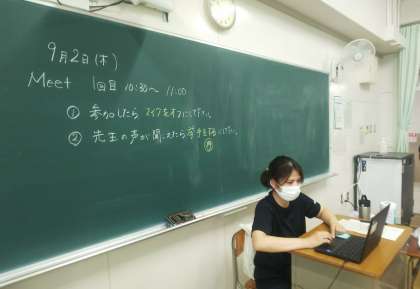 9月2日(木)
Meet 1回目 10:30〜11:00
① 参加したら マイクをオフにして下さい。
② 先生の声が聞こえたら挙手を押して下さい。